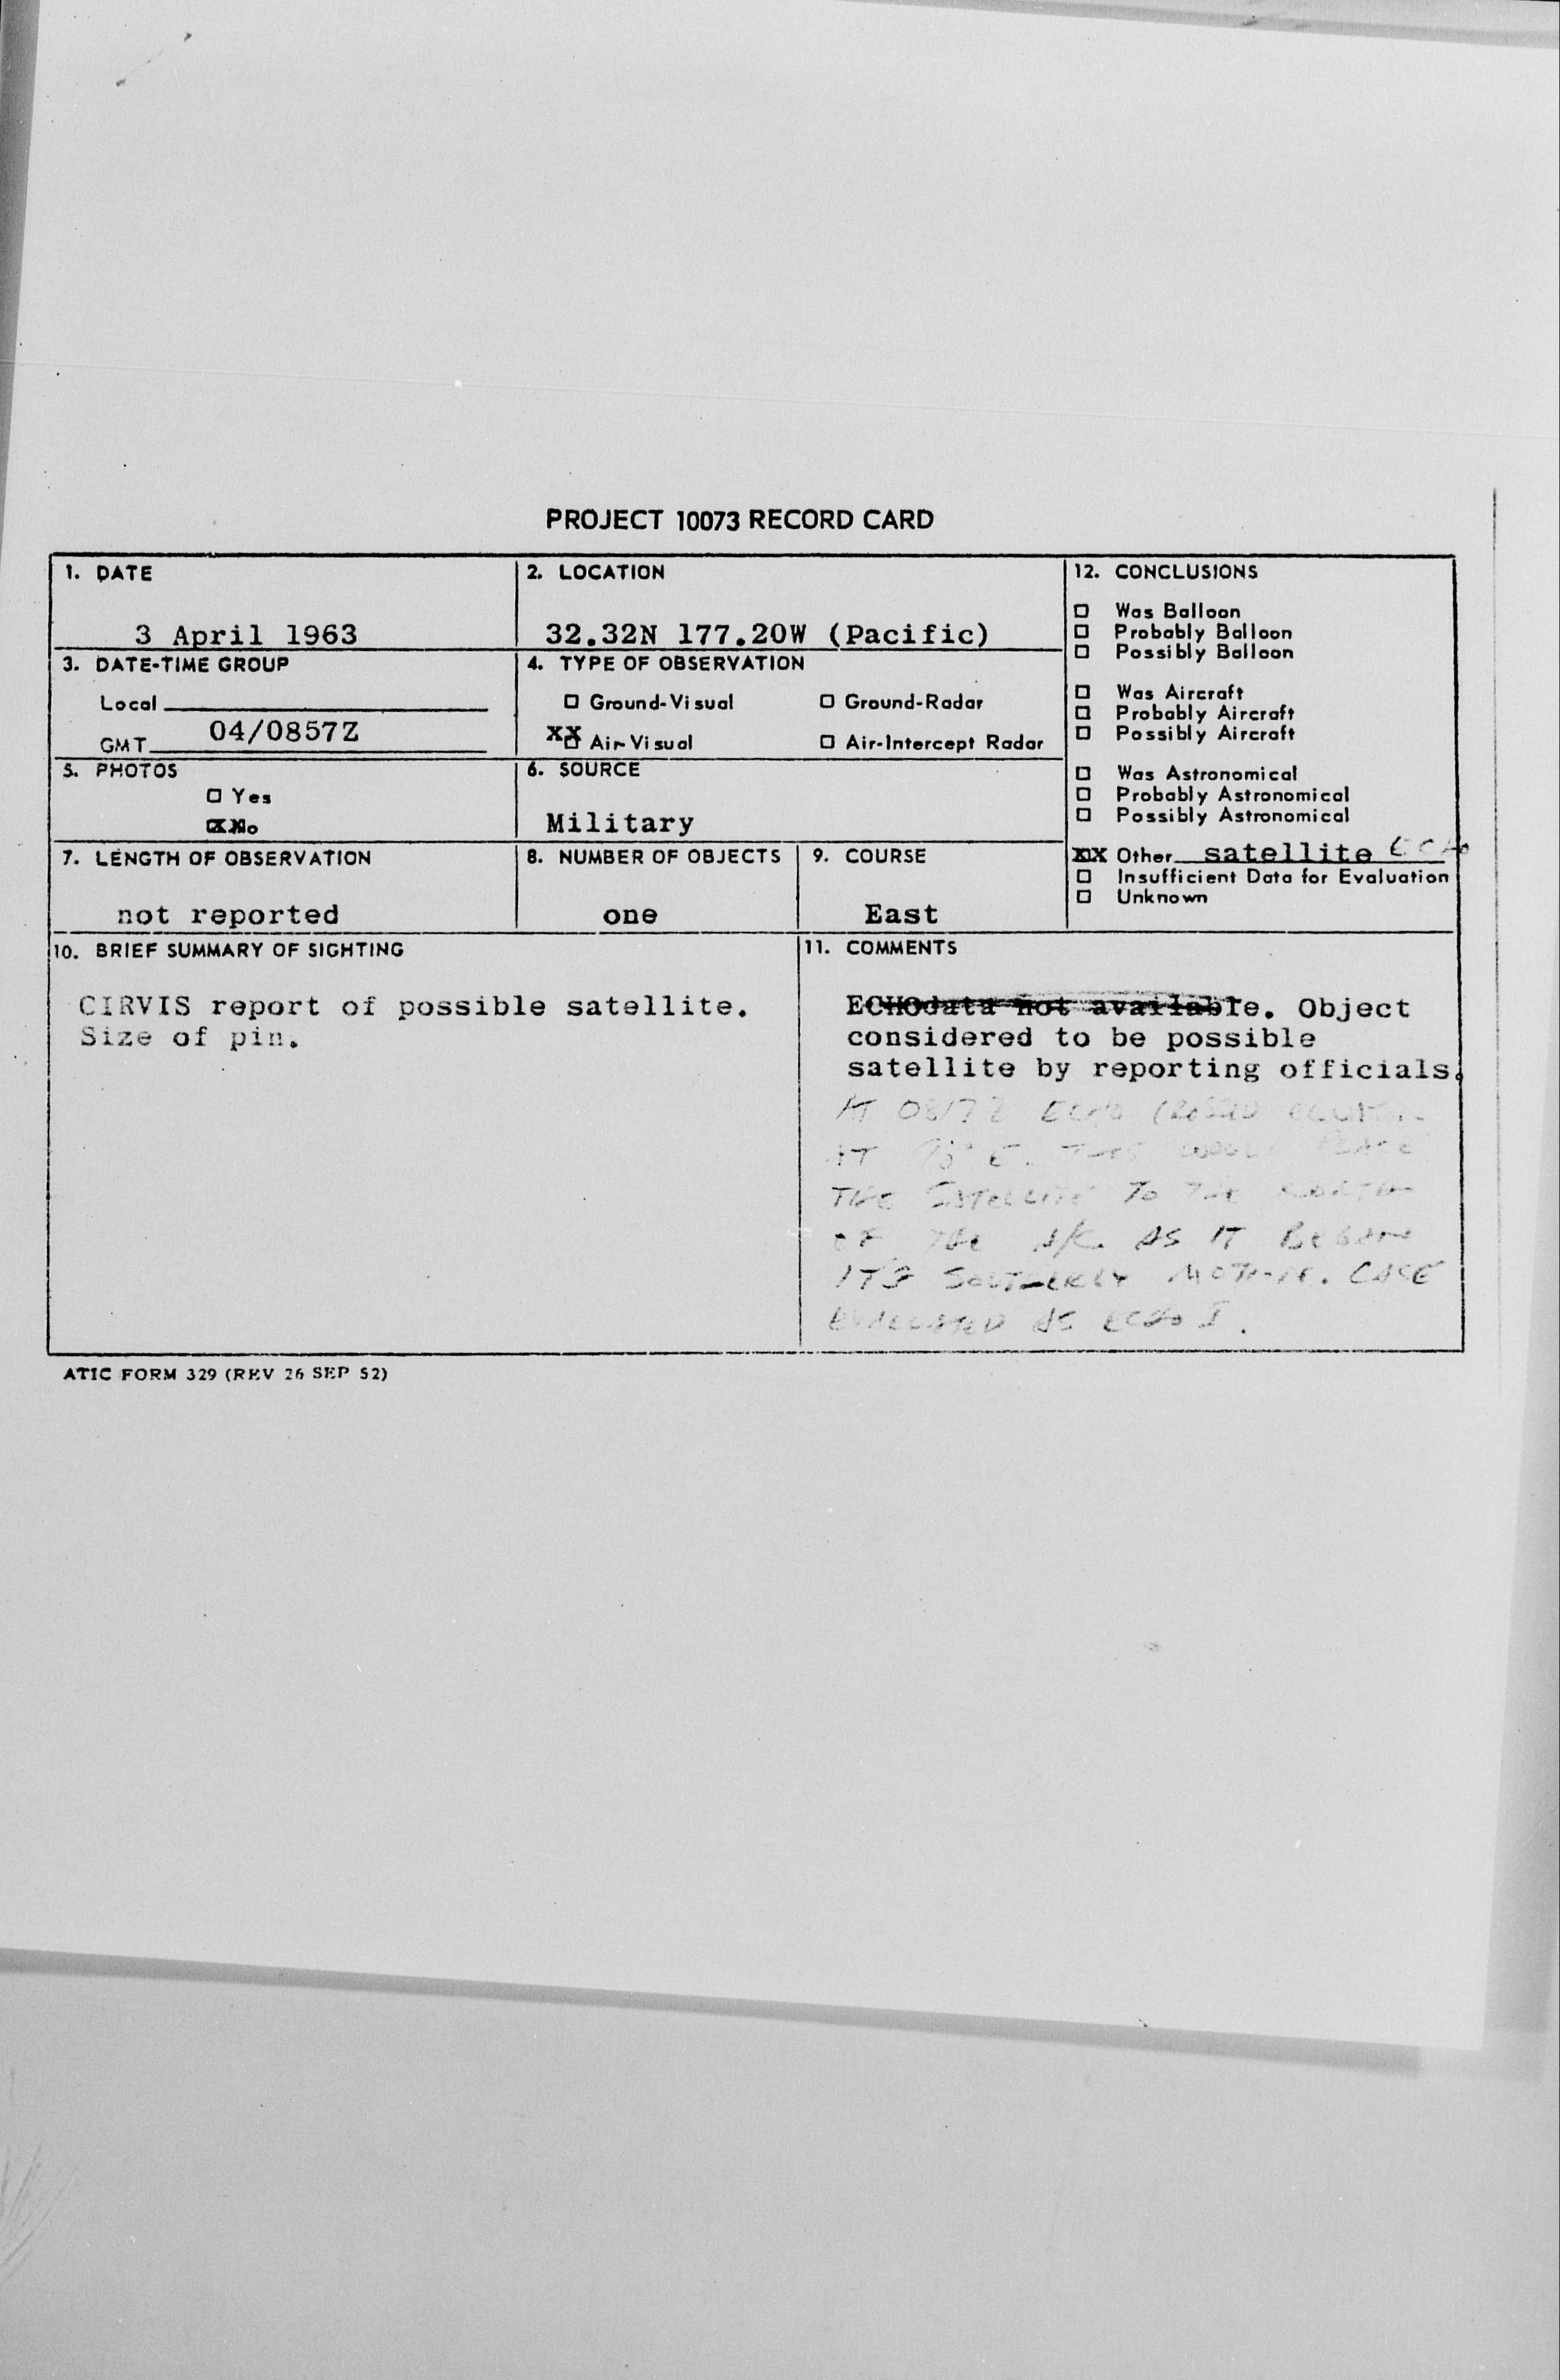 PROJECT 10073 RECORD CARD
1. DATE
3 April 1963
2. LOCATION
32.32N 177.20W (Pacific)
3. DATE-TIME GROUP
Local
GMT 04/0857Z
4. TYPE OF OBSERVATION
☐ Ground-Visual ☐ Ground-Radar
XX Air-Visual ☐ Air-Intercept Radar
5. PHOTOS
☐ Yes
XX No
6. SOURCE
Military
7. LENGTH OF OBSERVATION
not reported
8. NUMBER OF OBJECTS
one
9. COURSE
East
12. CONCLUSIONS
☐ Was Balloon
☐ Probably Balloon
☐ Possibly Balloon
☐ Was Aircraft
☐ Probably Aircraft
☐ Possibly Aircraft
☐ Was Astronomical
☐ Probably Astronomical
☐ Possibly Astronomical
XX Other satellite ECHO
☐ Insufficient Data for Evaluation
☐ Unknown
10. BRIEF SUMMARY OF SIGHTING
CIRVIS report of possible satellite.
Size of pin.
11. COMMENTS
ECHOdata not available. Object
considered to be possible
satellite by reporting officials.
AT ECHO CROSSED
AT E. THIS WOULD PLACE
THE SATELLITE TO THE NORTH
OF THE A/C AS IT BEGAN
ITS SOUTHERLY MOTION. CASE
EVALUATED AS ECHO I.
ATIC FORM 329 (REV 26 SEP 52)